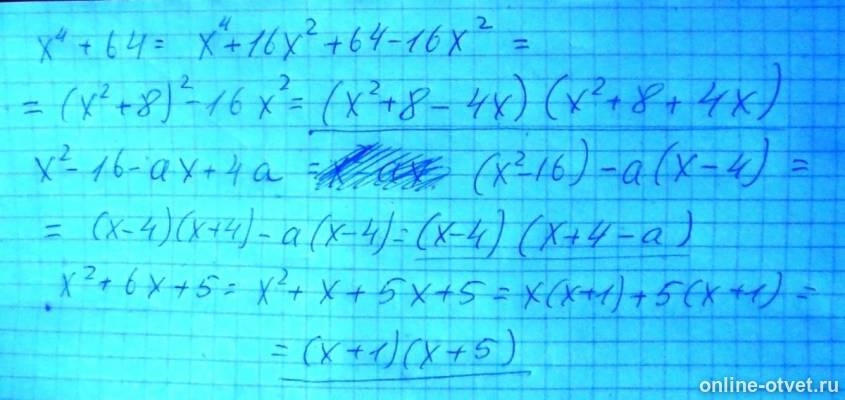 x⁴ + 64 = x⁴ + 16x² + 64 - 16x² =
= (x² + 8)² - 16x² = (x² + 8 - 4x) (x² + 8 + 4x)
x² - 16 - ax + 4a = (x² - 16) - a(x - 4) =
= (x - 4)(x + 4) - a(x - 4) = (x - 4) (x + 4 - a)
x² + 6x + 5 = x² + x + 5x + 5 = x(x + 1) + 5(x + 1) =
= (x + 1)(x + 5)
online-otvet.ru